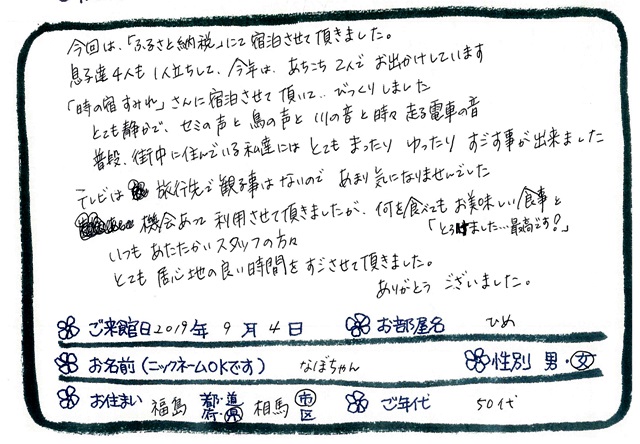 今回は、「ふるさと納税」にて宿泊させて頂きました。
息子達4人も1人立ちして、今年は、あちこち2人でお出かけしています
「時の宿すみれ」さんに宿泊させて頂いて…びっくりしました
とても静かで、セミの声と鳥の声と川の音と時々走る電車の音
普段、街中に住んでいる私達にはとてもまったりゆったりすごす事が出来ました
テレビは旅行先で観る事はないのであまり気になりませんでした
機会あって利用させて頂きましたが、何を食べてもお美味しい食事と
「とろけました…最高です!」
いつもあたたかいスタッフの方々
とても居心地の良い時間をすごさせて頂きました。
ありがとうございました。
ご来館日 2019年 9月 4日 お部屋名 ひめ
お名前(ニックネームOKです) なぼちゃん 性別 男・女
お住まい 福島 都・道・府・県 相馬 市・区 ご年代 50代